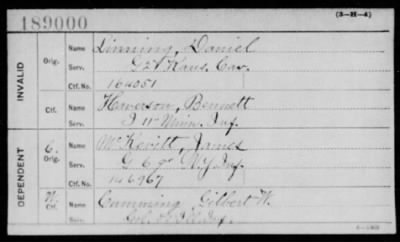 189000
(3-H-4)
INVALID
Orig.
Name Linning, Daniel
Serv. G 2d Kans. Cav.
Ctf. No. 164051
Ctf.
Name Haverson, Bennett
Serv. I 11" Minn. Inf.
DEPENDENT
C. Orig.
Name McKevitt, James
Serv. G 69" N.Y. Inf.
Ctf. No. 146967
W. Ctf.
Name Cumming, Gilbert W.
Serv. Col. Ill. Inf.